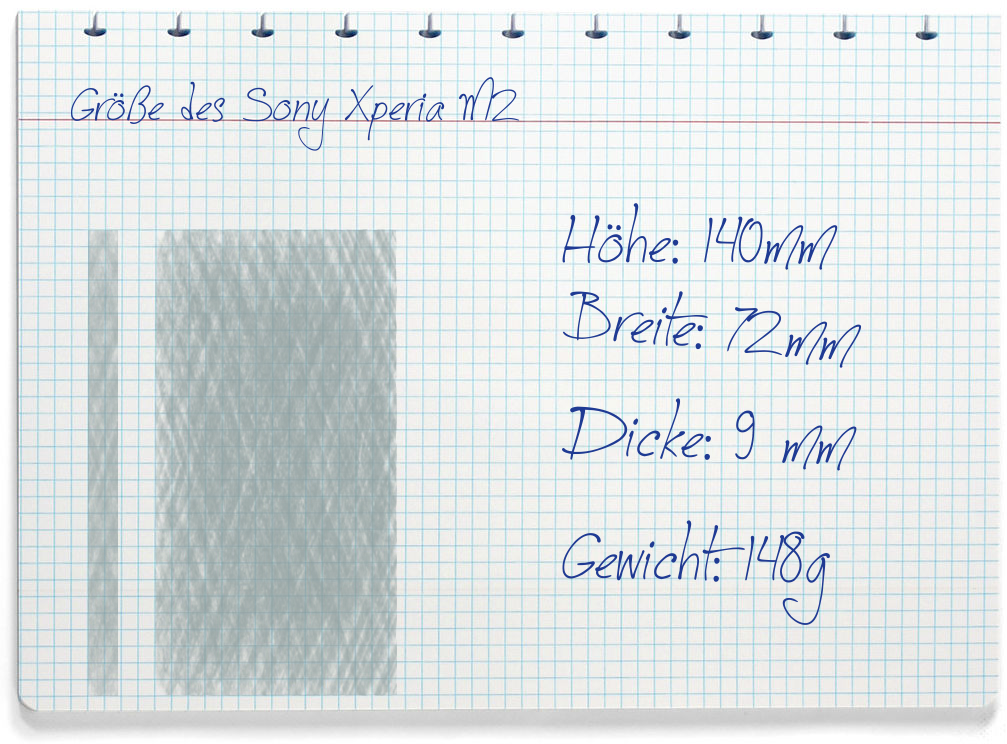 Größe des Sony Xperia M2
Höhe: 140mm
Breite: 72mm
Dicke: 9 mm
Gewicht: 148g